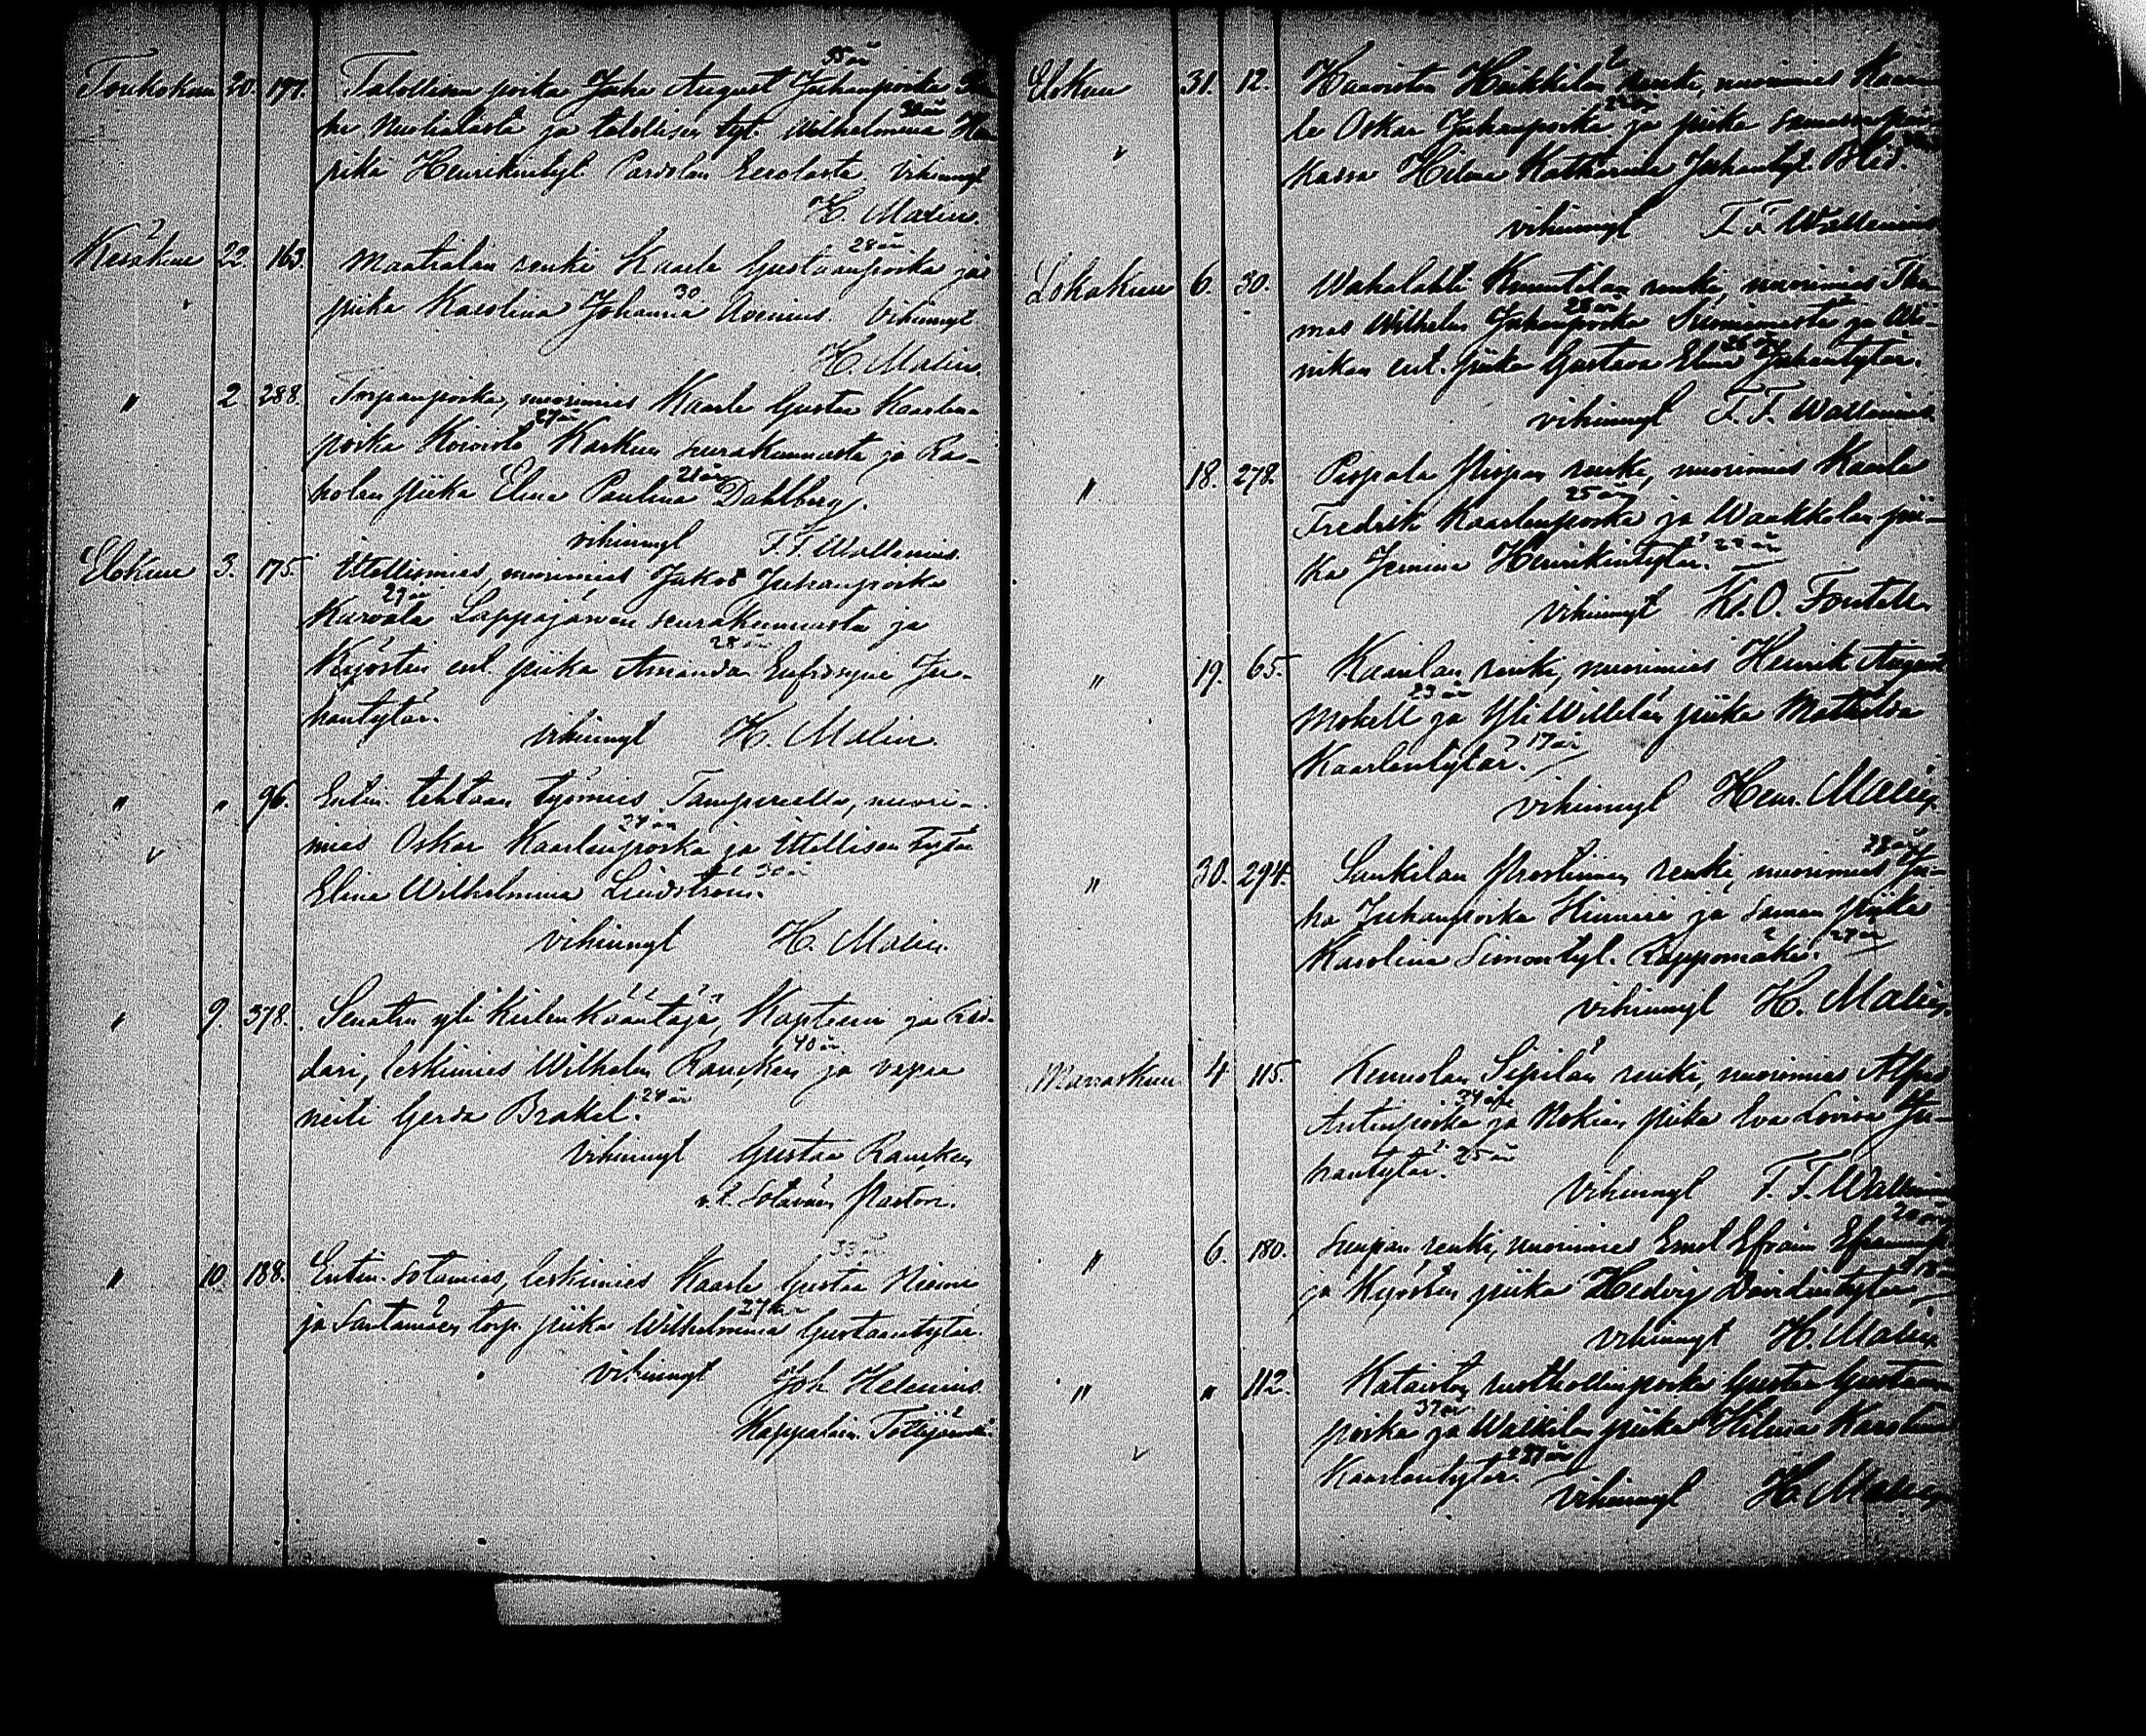 Toukokuu 20. 197. Talollisen poika Juha August Juhanpoika
35 v
ja talollisen tyt. Wilhelmina
rika Henrikintyt. Eerolasta. Vihinnyt
H. Malin.
Kesäkuu 22. 163. Maatialan renki Kaarle Gustaanpoika ja
28
piika Karolina Johanna Vihinnyt
30
H. Malin.
" 2 288. Torpanpoika, nuorimies Kaarle Gustaa Kaarlen-
poika Koivisto Karkun seurakunnasta ja
27
holan piika Elina Paulina Dahlberg.
21
vihinnyt F. F. Wallenius.
Elokuu 3. 175. Itsellismies, nuorimies Jakob Juhanpoika
Lappajärven seurakunnasta ja
29
Kyöstin ent. piika Amanda Eufrosyne Ju-
28
hantytär.
vihinnyt H. Malin.
" " 96. Entin. tehtaan työmies Tampereella, nuori-
mies Oskar Kaarlenpoika ja Itsellisen tytär
24
Elina Wilhelmina Lindström.
30
vihinnyt H. Malin.
" 9. 378. Senatin yli kielenkääntäjä, Kapteeni ja Rid-
dari, leskimies Wilhelm Rancken ja vapaa
40
neiti Gerda Brakel.
24
vihinnyt Gustaa Rancken
v.t. Sotaväen Pastori.
" 10. 188. Entin. sotamies, leskimies Kaarle Gustaa Niemi
33
ja Santamäen torp. piika Wilhelmina Gustaantytär.
27
vihinnyt Joh. Helenius
Kappalain. Tottijärvellä.
Elokuu 31. 12. Haaviston Heikkilän renki, nuorimies Kaar-
le Oskar Juhanpoika ja piika samassa pai-
kassa Hilma Katharina Juhantyt.
vihinnyt F. F. Wallenius
Lokakuu 6. 30. Wahalahti Knuutilan renki, nuorimies Tho-
mas Wilhelm Juhanpoika Suoniemestä ja
28
nikan ent. piika Gustava Elina Juhantytär.
26
vihinnyt F. F. Wallenius
" 18. 278. Pispala renki, nuorimies Kaarle
Fredrik Kaarlenpoika ja Waakkolan pii-
25
ka Jemina Henrikintytär.
22
vihinnyt K. O. Fontell.
" 19. 65. Kaurlan renki, nuorimies Henrik August
Mokell ja Yli Willilän piika Mathilda
23
Kaarlentytär.
19
vihinnyt Henr. Malin.
" 30. 294. Sankilan renki, nuorimies Ju-
38
ha Juhanpoika ja saman piika
Karolina Simontyt. Rappomäki.
27
vihinnyt H. Malin.
Marraskuu 4. 115. Kennolan Sipilän renki, nuorimies
Antinpoika ja Nokian piika Eva Lovisa Ju-
34
hantytär.
25
vihinnyt F. F. Wallenius
" 6. 180. renki, nuorimies Emil Efraim
ja Kyöstin piika Hedvig Davidintytär
vihinnyt H. Malin.
" " 112. Kataiston rusthollinpoika Gustaa Gustaan
poika ja Walkilan piika Hilma
37
Kaarlentytär.
27
vihinnyt H. Malin